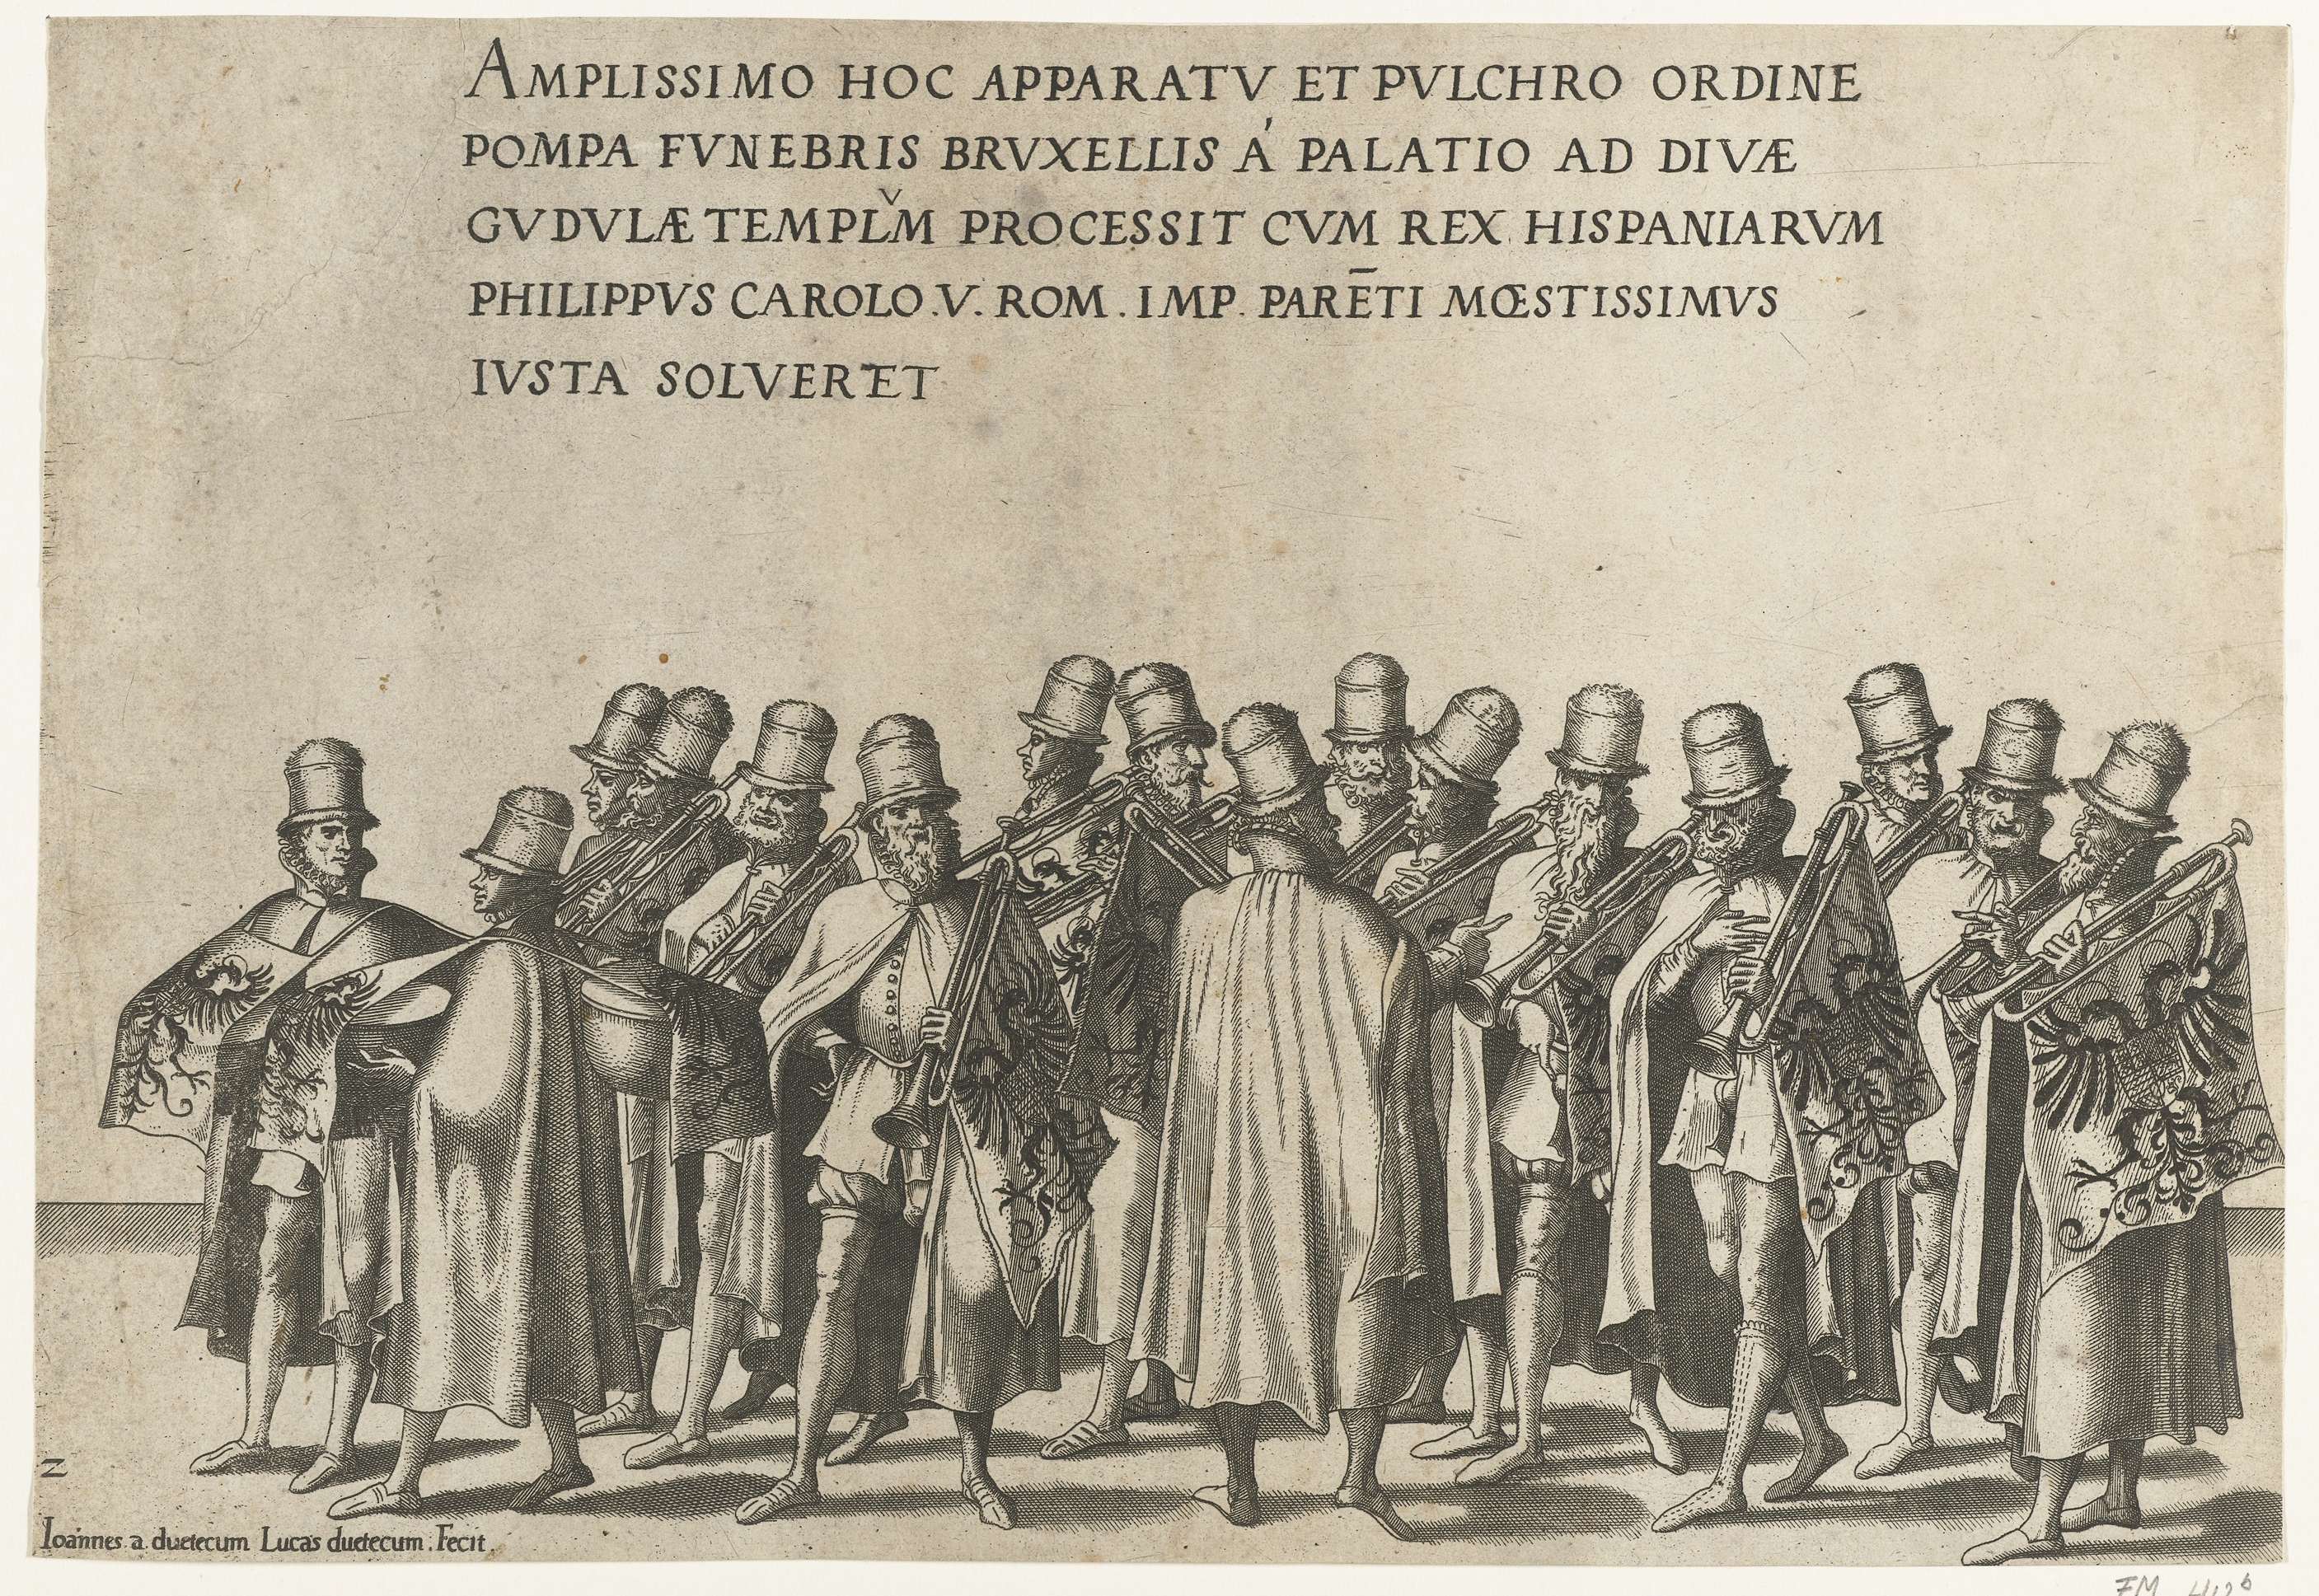 AMPLISSIMO HOC APPARATV ET PVLCHRO ORDINE
POMPA FVNEBRIS BRVXELLIS Á PALATIO AD DIVÆ
GVDVLÆ TEMPLVM PROCESSIT CVM REX HISPANIARVM
PHILIPPVS CAROLO.V. ROM. IMP. PARĒTI MŒSTISSIMVS
IVSTA SOLVERET
2
Ioannes a duetecum Lucas duetecum. Fecit.